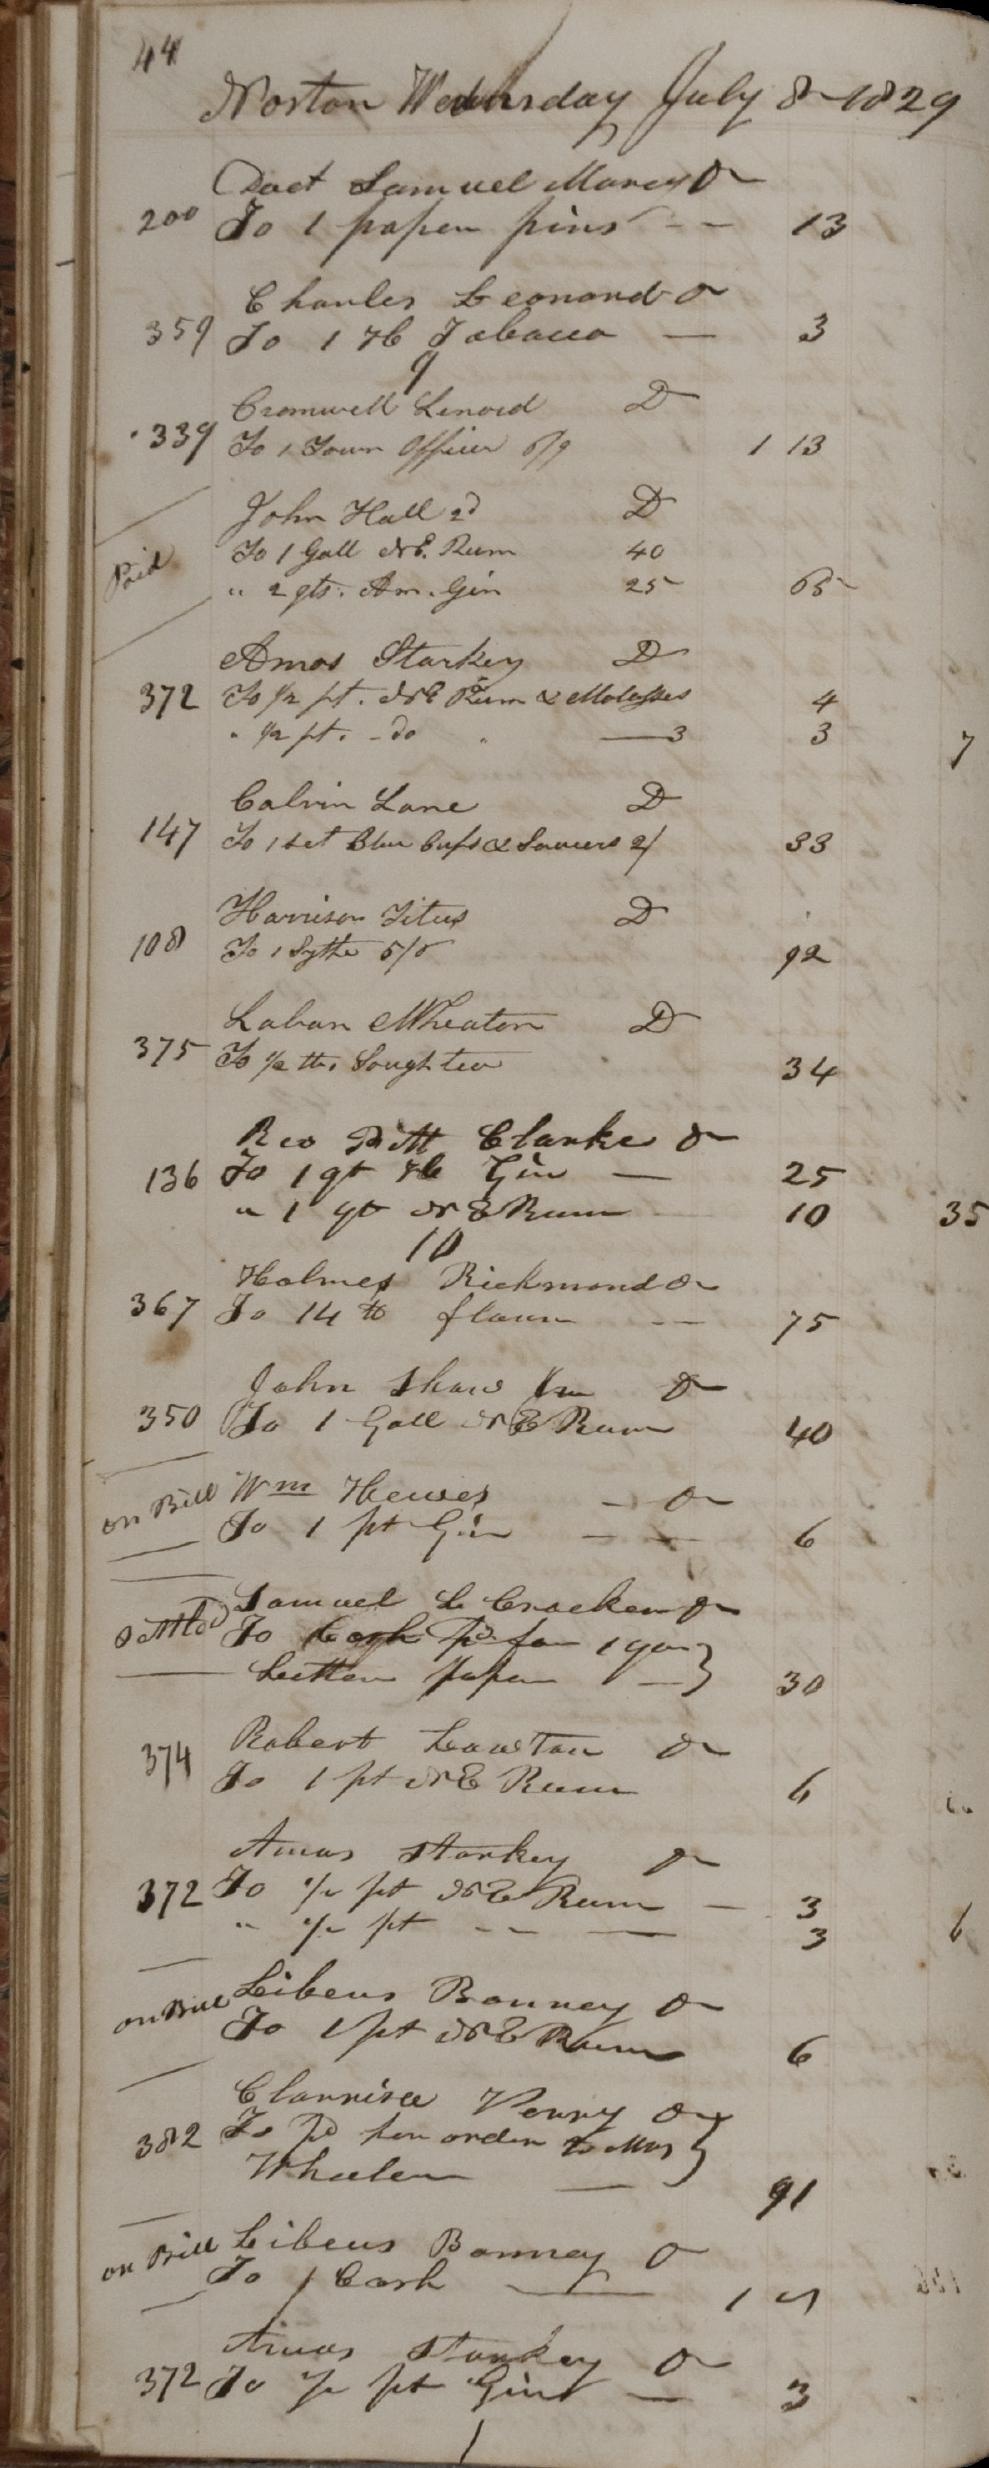 44
Norton Wednesday July 8 1829
Doct Samuel Morey Dr
200 To 1 paper pins 13
Charles Leonard Dr
359 To 1 Hb Tobacco 3
9
Cromwell Lenord D
339 To 1 Town Officer 6/9 1 13
John Hall 2d D
To 1 Gall N E. Rum 40
Paid " 2 qts. Am. Gin 25 65
Amos Starkey D
372 To 1/2 pt. N E Rum & Molasses 4
" 1/2 pt. - do " 3 3 7
Calvin Lane D
147 To 1 set Blue Cups & Saucers 2/ 33
Harrison Titus D
108 To 1 Sythe 5/6 92
Laban Wheaton D
375 To 1/2 lb. Soughtea 34
Rev Pitt Clarke Dr
136 To 1 qt Gin 25
" 1 qt N E Rum 10 35
10
Holmes Richmond Dr
367 To 14 lb flour 75
John Shaw Jun Dr
350 To 1 Gall N E Rum 40
on Bill Wm Hewes Dr
To 1 pt Gin 6
Samuel L Crocker Dr
Settled To Cash pd for 1 qr }
Letter paper } 30
374 Robert Lawton Dr
To 1 pt N E Rum 6
Amos Starkey Dr
372 To 1/2 pt N E Rum 3
" 1/2 pt - - 3 6
on Bill Libeus Bonney Dr
To 1 pt N E Rum 6
Clarrisa Perry Dr
382 To pd per order to Mrs }
Wheeler } 91
on Bill Libeus Bonney Dr
To Cash 1
Amos Starkey Dr
372 To 1/2 pt Gin 3
1